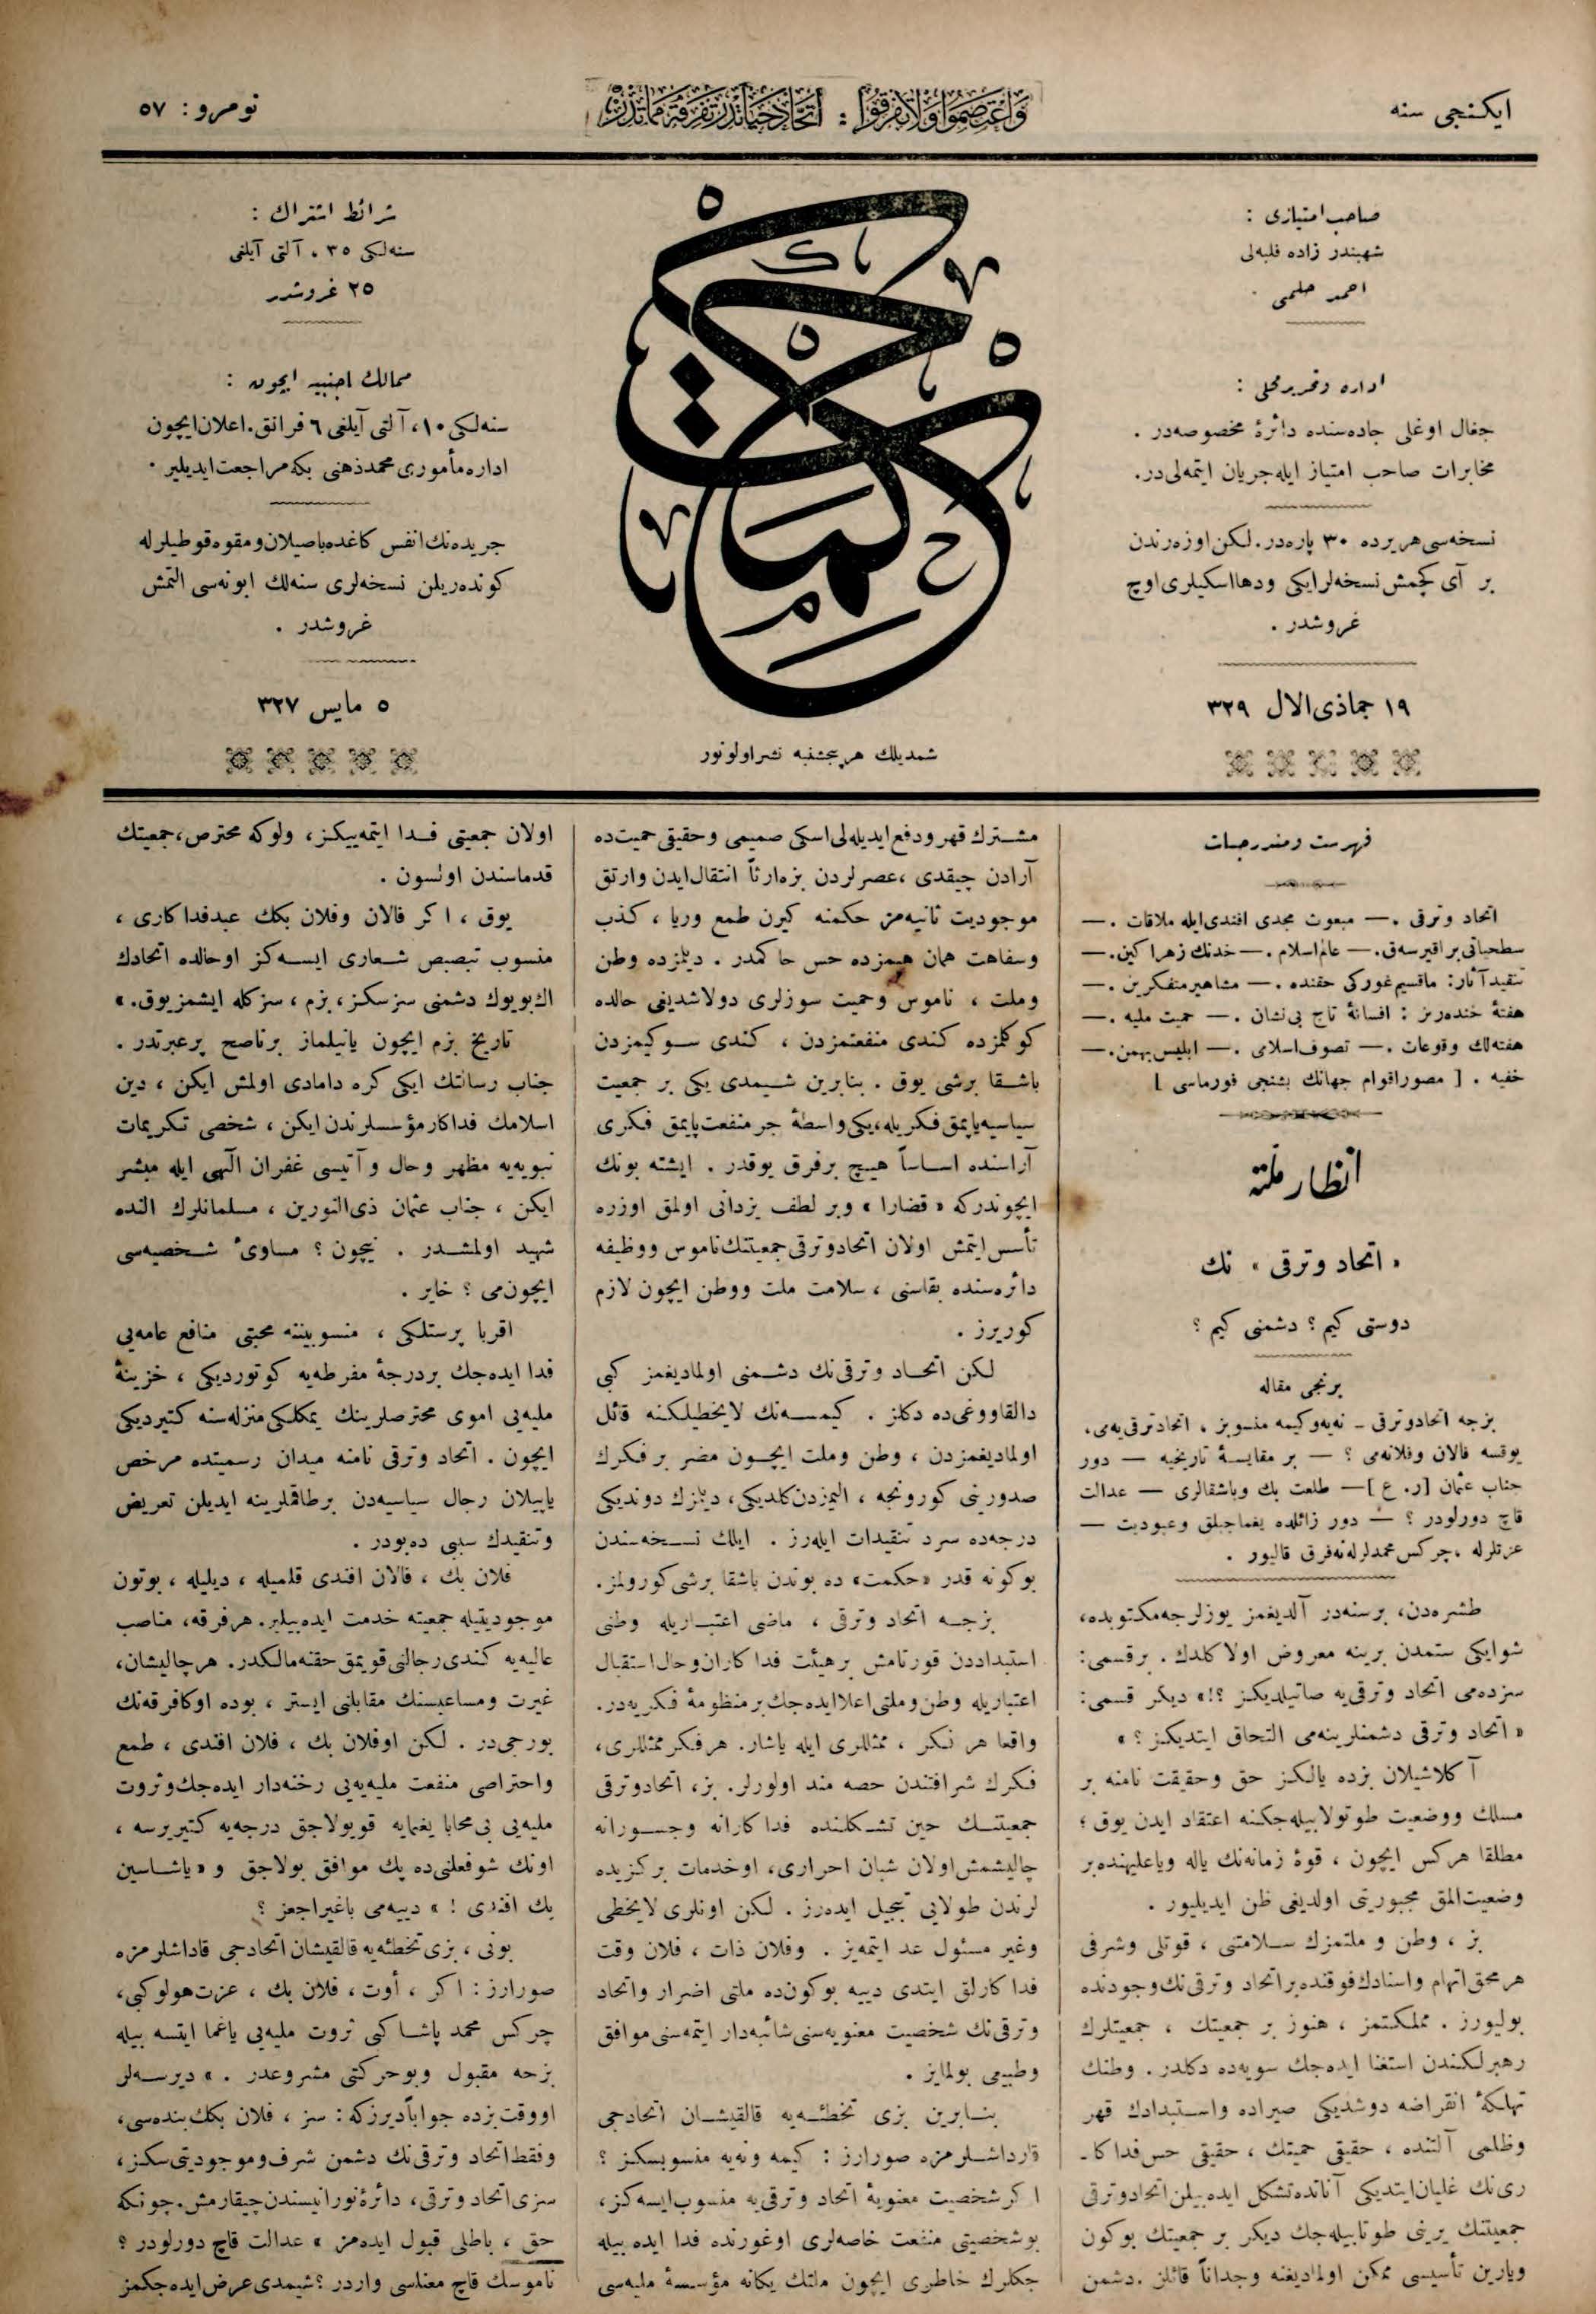 ایكنجی سنه
وَاعْتَصِمُوا وَلَا تَفَرَّقُوا : اتحاد حیاتدر تفرقه مماتدر
نومرو : ٥٧
صاحب امتیازی :
شهبندر زاده فلبه‌لی
احمد حلمی
اداره و تحریر محلی :
جغال اوغلی جاده‌سنده دائرهٔ مخصوصه‌در .
مخابرات صاحب امتیاز ایله جریان ایتمه‌لی‌در.
نسخه‌سی هر یرده ٣٠ پاره‌در. لكن اوزه‌رندن
بر آی كچمش نسخه‌لر ایكی و دها اسكیلری اوچ
غروشدر .
١٩ جماذی‌الال ٣٢٩
حكمت
شمدیلك هر پنجشنبه نشر اولونور
شرائط اشتراك :
سنه‌لكی ٣٥ ، آلتی آیلغی
٢٥ غروشدر
ممالك اجنبیه ایچون :
سنه‌لكی ١٠ ، آلتی آیلغی ٦ فرانق. اعلان ایچون
اداره مأموری محمد ذهنی بكه مراجعت ایدیلیر .
جریده‌نك انفس كاغده باصیلان و مقوه قوطیلرله
كونده‌ریلن نسخه‌لری سنه‌لك ابونه‌سی التمش
غروشدر .
٥ مایس ٣٢٧
فهرست و مندرجات
اتحاد و ترقی .— مبعوث مجدی افندی ایله ملاقات .—
سطحیاتی براقیرسه‌ق.— عالم‌اسلام .— خدنك زهرا كین.—
تنقید آثار: ماقسیم غوركی حقنده .— مشاهیر متفكرین .—
هفتهٔ خنده‌ریز : افسانهٔ تاج بی‌نشان .— حمیت ملیه .—
هفته‌لك وقوعات .— تصوف اسلامی .— ابلیس بهمن.—
خفیه . [ مصور اقوام جهانك بشنجی فورماسی ]
انظار ملته
« اتحاد و ترقی » نك
دوستی كیم ؟ دشمنی كیم ؟
برنجی مقاله
بزجه اتحاد و ترقی ـ نه‌یه و كیمه منسوبز ، اتحاد ترقی‌یه‌می،
یوقسه فالان و فلانه‌می ؟ — بر مقایسهٔ تاریخیه — دور
جناب عثمان [ر. ع ]— طلعت بك و باشقالری — عدالت
قاچ دورلودر ؟ — دور زائلده یغماجیلق و عبودیت —
عزتلرله ، چركس محمدلرله نه‌فرق قالیور .
طشره‌دن، بر سنه‌در آلدیغمز یوزلرجه مكتوبده،
شو ایكی ستمدن برینه معروض اولا كلدك . بر قسمی :
سزده‌می اتحاد و ترقی‌یه صاتیلدیكز ؟!» دیكر قسمی :
« اتحاد و ترقی دشمنلرینه‌می التحاق ایتدیكز ؟ »
آكلاشیلان بزده یالكز حق و حقیقت نامنه بر
مسلك و وضعیت طوتولا بیله‌جكنه اعتقاد ایدن یوق ؛
مطلقا هركس ایچون ، قوهٔ زمانه‌نك یاله ویا علیهنده بر
وضعیت المق مجبوریتی اولدیغی ظن ایدیلیور .
بز ، وطن و ملتمزك سلامتنی ، قوتلی و شرفی
هر محق اتهام و اسنادك فوقنده بر اتحاد و ترقی‌نك وجودنده
بولیورز . مملكتمز ، هنوز بر جمعیتك ، جمعیتلرك
رهبرلكندن استغنا ایده‌جك سویه‌ده دكلدر . وطنك
تهلكهٔ انقراضه دوشدیكی صیراده و استبدادك قهر
و ظلمی آلتنده ، حقیقی حمیتك ، حقیقی حس فداكا-
ری‌نك غلیان ایتدیكی آنانده تشكل ایده‌بیلن اتحاد و ترقی
جمعیتنك یرینی طوتا بیله‌جك دیكر بر جمعیتك بوكون
و یارین تأسیسی ممكن اولمادیغنه وجداناً قائلز .دشمن
مشترك قهر و دفع ایدیله‌لی اسكی صمیمی و حقیقی حمیت ده
آرادن چیقدی ، عصرلردن بزه ارثاً انتقال ایدن و ارتق
موجودیت ثانیه‌مز حكمنه كیرن طمع و ریا ، كذب
و سفاهت همان هپمزده حس حاكمدر . دیلمزده وطن
و ملت ، ناموس و حمیت سوزلری دولاشدیغی حالده
كوكلمزده كندی منفعتمزدن ، كندی سوكیمزدن
باشقا برشی یوق . بنابرین شیمدی یكی بر جمعیت
سیاسیه یاپمق فكریله ، یكی واسطهٔ جر منفعت یاپمق فكری
آراسنده اساساً هیچ بر فرق یوقدر . ایشته بونك
ایچوندركه « قضارا » و بر لطف یزدانی اولمق اوزره
تأسس ایتمش اولان اتحاد و ترقی جمعیتنك ناموس و وظیفه
دائره‌سنده بقاسنی ، سلامت ملت و وطن ایچون لازم
كوریرز .
لكن اتحاد و ترقی‌نك دشمنی اولمادیغمز كبی
دالقاووغی ده دكلز . كیمسه‌نك لایخطیلكنه قائل
اولمادیغمزدن ، وطن و ملت ایچون مضر بر فكرك
صدورینی كورونجه ، المزدن كلدیكی ، دیلمزك دوندیكی
درجه‌ده سرد تنقیدات ایلرز . ایلك نسخه‌سندن
بوكونه قدر «حكمت» ده بوندن باشقا برشی كورولمز.
بزجه اتحاد و ترقی ، ماضی اعتباریله وطنی
استبداددن قورتامش بر هیئت فداكاران و حال استقبال
اعتباریله وطن و ملتی اعلا ایده‌جك بر منظومهٔ فكریه‌در.
واقعا هر فكر ، ممثللری ایله یاشار. هر فكر ممثللری،
فكرك شرافتندن حصه مند اولورلر. بز، اتحاد و ترقی
جمعیتنك حین تشكلنده فداكارانه و جسورانه
چالیشمش اولان شبان احراری، او خدمات بركزیده
لرندن طولایی تبجیل ایده‌رز . لكن اونلری لایخطی
و غیر مسئول عد ایتمه‌یز . و فلان ذات ، فلان وقت
فداكارلق ایتدی دییه بوكون ده ملتی اضرار و اتحاد
و ترقی‌نك شخصیت معنویه‌سنی شائبه‌دار ایتمه‌سنی موافق
و طبیعی بولمایز .
بنابرین بزی تخطئه‌یه قالقیشان اتحادجی
قارداشلرمزه صورارز : كیمه و نه‌یه منسوبسكز ؟
اكر شخصیت معنویهٔ اتحاد و ترقی‌یه منسوب ایسه‌كز،
بو شخصیتی منفعت خاصه‌لری اوغورنده فدا ایده بیله
جكلرك خاطری ایچون ملتك یكانه مؤسسهٔ ملیه‌سی
اولان جمعیتی فدا ایتمه‌ییكز ، ولوكه محترص، جمعیتك
قدماسندن اولسون .
یوق ، اكر فالان و فلان بكك عبد فداكاری ،
منسوب تبصبص شعاری ایسه‌كز او حالده اتحادك
اك بویوك دشمنی سزسكز ، بزم ، سزكله ایشمز یوق. »
تاریخ بزم ایچون یانیلماز بر ناصح پر عبرتدر .
جناب رسالتك ایكی كره دامادی اولمش ایكن ، دین
اسلامك فداكار مؤسسلرندن ایكن ، شخصی تكریمات
نبویه‌یه مظهر و حال و آتیسی غفران الهی ایله مبشر
ایكن ، جناب عثمان ذی‌النورین ، مسلمانلرك النده
شهید اولمشدر . نیچون ؟ مساوئ شخصیه‌سی
ایچون‌می ؟ خایر .
اقربا پرستلكی ، منسوبیننه محبتی منافع عامه‌یی
فدا ایده‌جك بر درجهٔ مفرطه‌یه كوتوردیكی ، خزینهٔ
ملیه‌یی اموی محترصلرینك یمكلكی منزله‌سنه كتیردیكی
ایچون . اتحاد و ترقی نامنه میدان رسمیتده مرخص
یاپیلان رجال سیاسیه‌دن برطاقملرینه ایدیلن تعریض
و تنقیدك سببی ده بودر .
فلان بك ، فالان افندی قلمیله ، دیلیله ، بوتون
موجودیتیله جمعیته خدمت ایده‌بیلیر. هر فرقه، مناصب
عالیه‌یه كندی رجالنی قویمق حقنه مالكدر. هر چالیشان،
غیرت و مساعیسنك مقابلنی ایستر ، بوده او كا فرقه‌نك
بورجی‌در . لكن او فلان بك ، فلان افندی ، طمع
و احتراصی منفعت ملیه‌یی رخنه‌دار ایده‌جك و ثروت
ملیه‌یی بی محابا یغمایه قویولاجق درجه‌یه كتیریرسه ،
اونك شو فعلنی ده پك موافق بولاجق و « یاشاسین
بك افندی ! » دییه‌می باغیراجغز ؟
بونی ، بزی تخطئه‌یه قالقیشان اتحادجی قاداشلرمزه
صورارز : اكر ، أوت ، فلان بك ، عزت هولو كبی،
چركس محمد پاشا كبی ثروت ملیه‌یی یاغما ایتسه بیله
بزجه مقبول و بو حركتی مشروعدر . » دیرسه‌لر
او وقت بزده جواباً دیرزكه : سز ، فلان بكك بنده‌سی،
و فقط اتحاد و ترقی‌نك دشمن شرف و موجودیتی سكز ،
سزی اتحاد و ترقی ، دائرهٔ نورانیسندن چیقارمش. چونكه
حق ، باطلی قبول ایده‌مز » عدالت قاچ دورلودر ؟
ناموسك قاچ معناسی واردر ؟ شیمدی عرض ایده‌جكمز